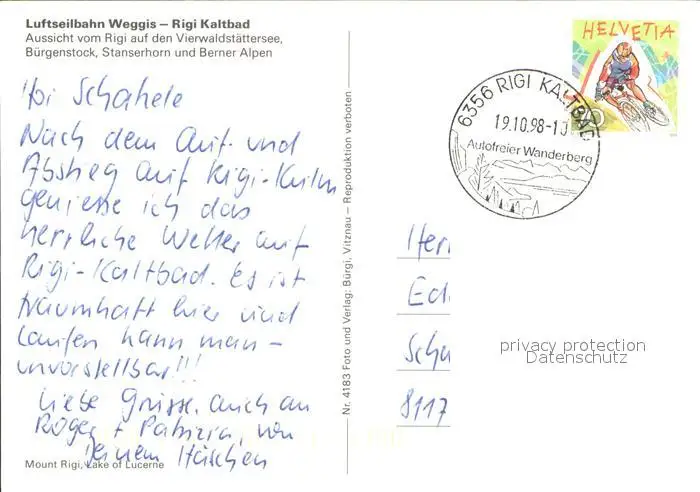 Luftseilbahn Weggis – Rigi Kaltbad
Aussicht vom Rigi auf den Vierwaldstättersee,
Bürgenstock, Stanserhorn und Berner Alpen
Hoi Schahele
Nach dem Auf- und
Abstieg auf Rigi-Kulm
geniesse ich das
herrliche Wetter auf
Rigi-Kaltbad. Es ist
traumhaft hier und
laufen kann man –
unvorstellbar!!!
Liebe Grüsse, auch an
Roger + Patrizia, von
Deinem Häschen
Mount Rigi, Lake of Lucerne
Nr. 4183 Foto und Verlag: Bürgi, Vitznau – Reproduktion verboten
HELVETIA
6356 RIGI KALTBAD
19.10.98-1
Autofreier Wanderberg
Herr
Ed
Schu
8117
privacy protection
Datenschutz